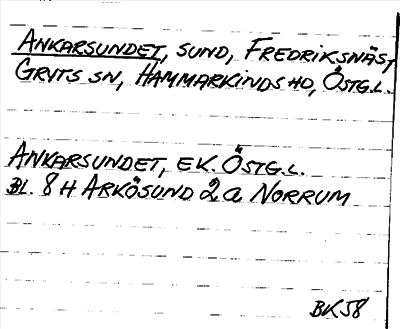 ANKARSUNDET, SUND, FREDRIKSNÄS,
GRYTS SN, HAMMARKINDS HD, ÖSTG.L.
ANKARSUNDET, EK. ÖSTG.L.
BL. 8 H ARKÖSUND 2 a NORRUM
BK 58